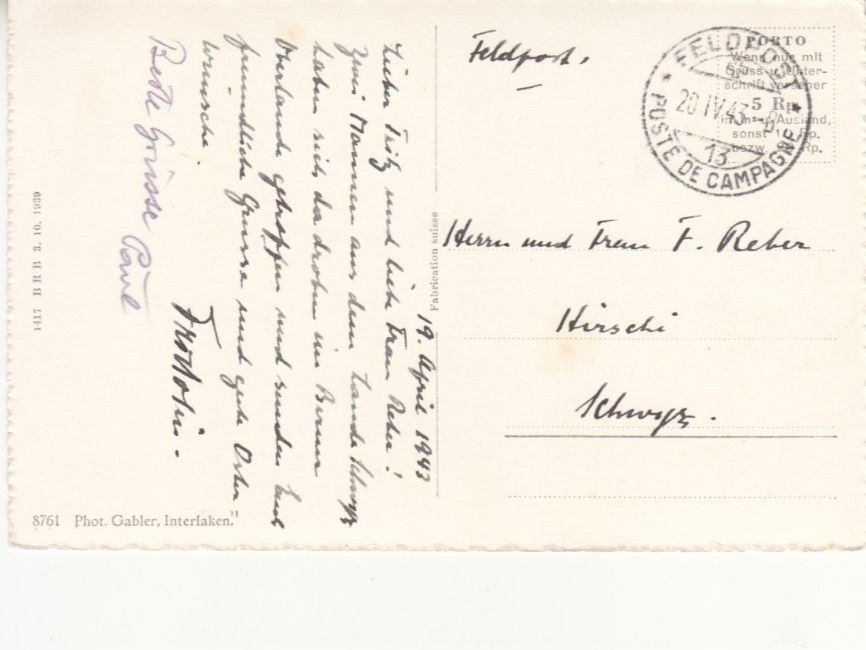 Feldpost.
FELDPOST
20.IV.43
13
POSTE DE CAMPAGNE
PORTO
Wenn nur mit
Gruss u. Unter-
schrift versehen
5 Rp.
Ausland,
sonst Rp.
bezw. Rp.
Herrn und Frau F. Reber
Hirschi
Schwyz.
Fabrication suisse
19. April 1943
Lieber Fritz und liebe Frau Reber!
Zwei Mannen aus dem Lande Schwyz
haben sich da droben im Berner
Oberlande getroffen und senden Euch
freundliche Grüsse und gute Oster
wünsche.
Beste Grüsse Paul
1417 BRB 3. 10. 1939
8761 Phot. Gabler, Interlaken.